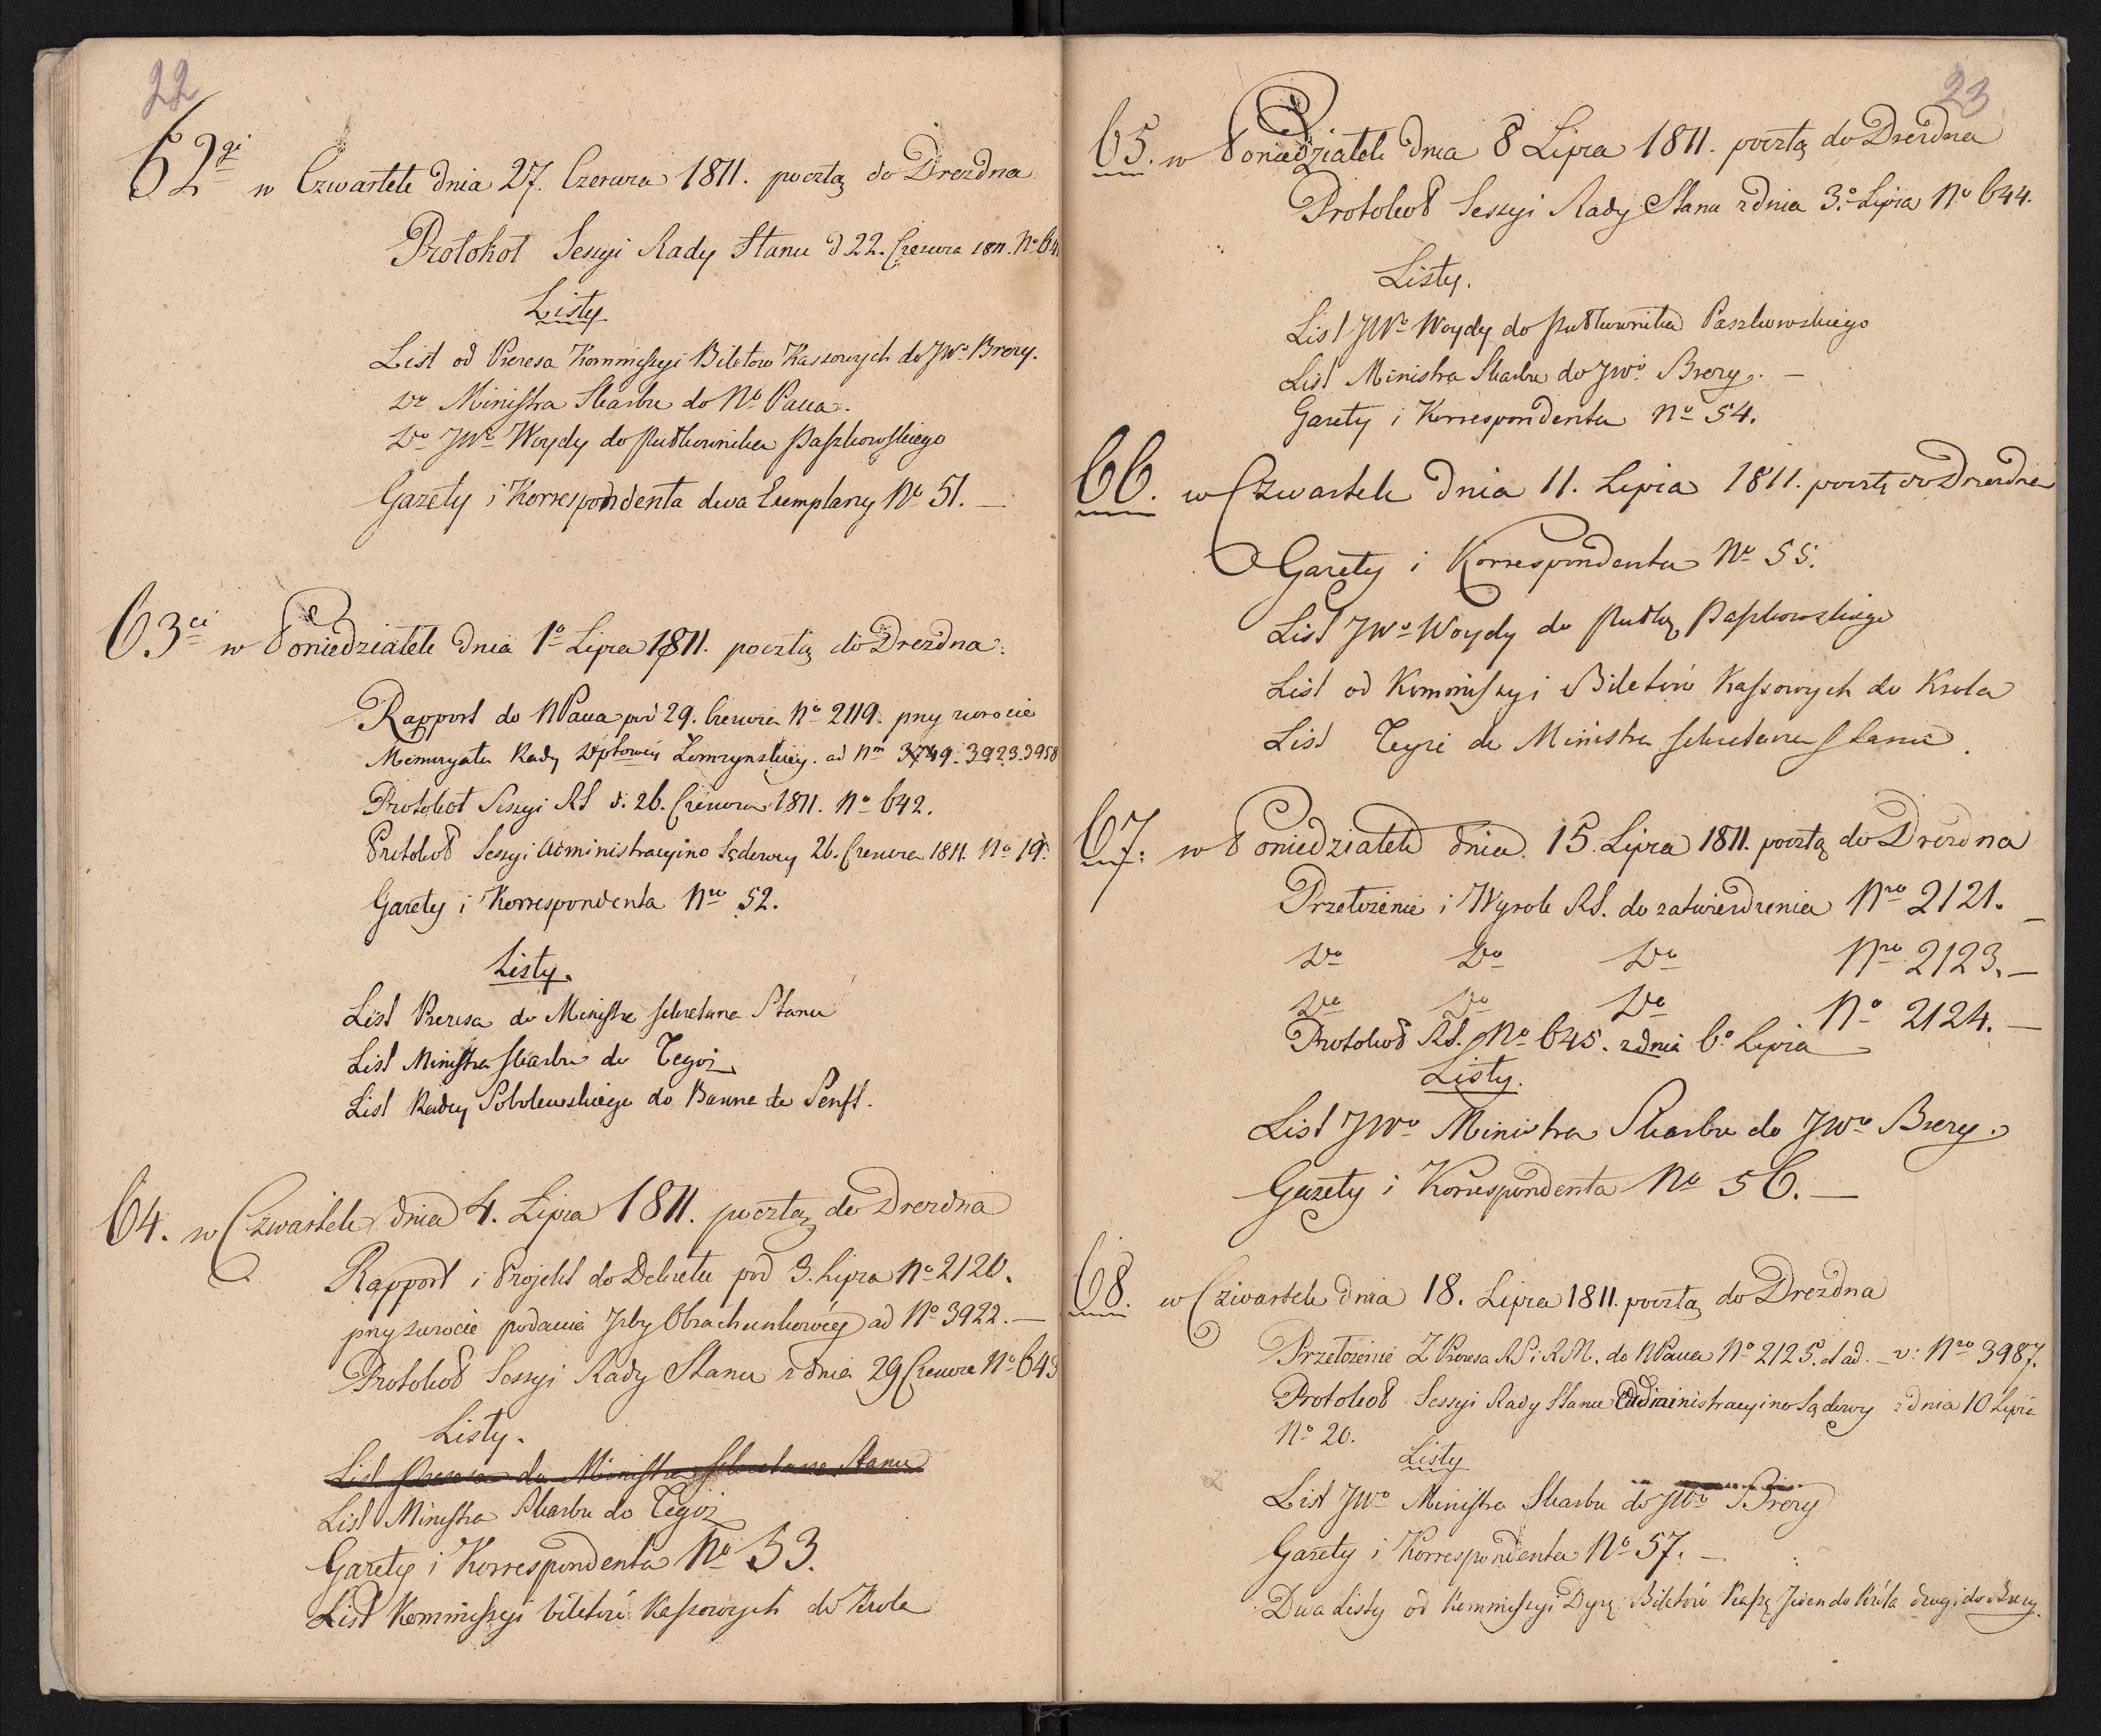 22
62gi w Czwartek dnia 27. Czerwca 1811. pocztą do Drezdna
Protokoł Sessyi Rady Stanu d 22. Czerwca 1811. No 641
Listy
List od Prezesa Kommissyi Biletow Kassowych do JWo Brezy.
Do Ministra Skarbu do No Pana.
Do JWo Woydy do Pułkownika Paszkowskiego
Gazety i Korrespondenta dwa Exemplarzy No 51. —
63ci w Poniedziałek dnia 1o Lipca 1811. pocztą do Drezdna.
Rapport do NPana pod 29. Czerwca No 2119. przy zwrocie
Memoryału Rady Dptowey Łomzynskiey. ad Nm 3749. 3923. 3958
Protokoł Sessyi RS d. 26. Czerwca 1811. No 642.
Protokoł Sessyi Administracyino Sądowey 26. Czerwca 1811. No 19.
Gazety i Korrespondenta Nro 52.
Listy.
List Prezesa do Ministra Sekretarza Stanu
List Ministra Skarbu do Tegoż
List Radcy Sobolewskiego do Barona de Senft.
64. w Czwartek dnia 4. Lipca 1811. pocztą do Drezdna
Rapport i Projekt do Dekretu pod 3. Lipca No 2120.
przy zwrocie podania Izby Obrachunkowey ad No 3922. —
Protokoł Sessyi Rady Stanu z dnia 29 Czerwca No 643
Listy.
List Prezesa do Ministra Sekretarza Stanu
List Ministra Skarbu do Tegoż
Gazety i Korrespondenta No 53.
List Kommissyi biletow Kassowych do Krola
23
65. w Poniedziałek dnia 8 Lipca 1811. pocztą do Drezdna
Protokoł Sessyi Rady Stanu z dnia 3o Lipca No 644.
Listy.
List JWo Woydy do Pułkownika Paszkowskiego
List Ministra Skarbu do JWo Brezy. —
Gazety i Korrespondenta No 54.
66. w Czwartek dnia 11. Lipca 1811. pocztą do Drezdna
Gazety i Korrespondenta No 55.
List JWo Woydy do Pułku Paszkowskiego
List od Kommissyi Biletów Kassowych do Krola
List Teyże do Ministra Sekretarza Stanu.
67. w Poniedziałek dnia 15 Lipca 1811. pocztą do Drezdna
Przełożenie i Wyrok RS. do zatwierdzenia Nro 2121. —
Do Do Do Nro 2123. —
Do Do Do No 2124. —
Protokoł RS. No 645. z dnia 6o Lipca
Listy.
List JWo Ministra Skarbu do JWo Brezy.
Gazety i Korrespondenta No 56. —
68. w Czwartek dnia 18. Lipca 1811. pocztą do Drezdna
Przełożenie Z Prezesa RS i RM. do NPana No 2125. d ad. — v: Nro 3987.
Protokoł Sessyi Rady Stanu Administracyino Sądowey z dnia 10 Lipca
No 20.
Listy
List JWo Ministra Skarbu do JWo Brezy
Gazety i Korrespondenta No 57. —
Dwa Listy od Kommissyi Dyrę Biletów Kassę Jeden do Króla drugi do Brezy.